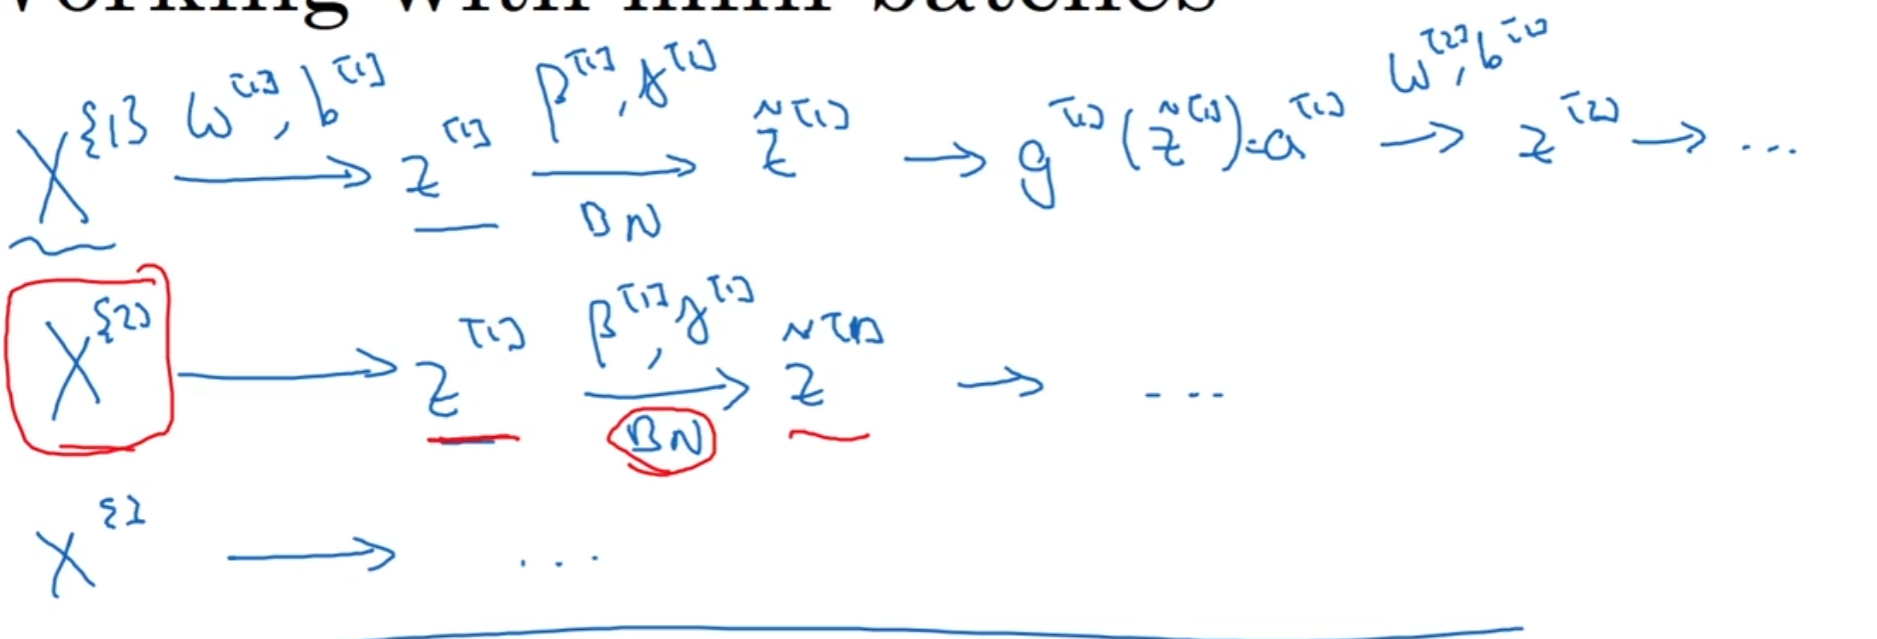 working with mini-batches
X^{1} → w^[1], b^[1] z^[1] → β^[1], γ^[1] BN z̃^[1] → g^[1](z̃^[1]) = a^[1] → w^[2], b^[2] z^[2] → ...
X^{2} → z^[1] → β^[1], γ^[1] BN z̃^[1] → ...
X^{} → ...